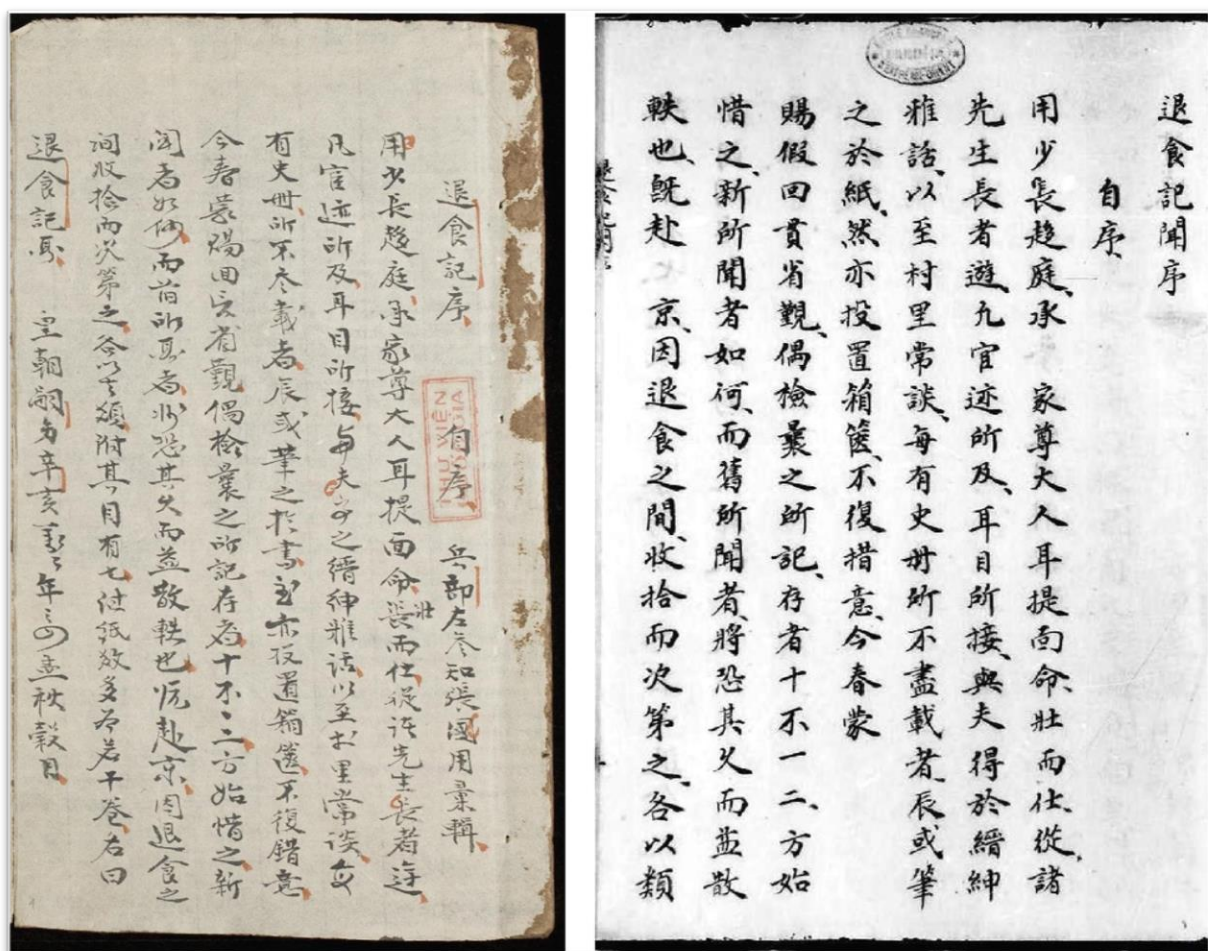 退食記序
自序 兵部左参知張國用彙輯
用少長趨庭承家尊大人耳提面命長壯而仕從諸先生長者遊
凡宦迹所及耳目所接與夫得之縉紳雅話以至村里常談每
有史冊所不尽載者辰或筆之於書亦投置箱篋不復錯意
今春蒙賜回貫省覲偶檢囊之所記存者十不一二方始惜之新
聞者如何而前所聞者將恐其久而益散軼也旣赴京因退食之
间收拾而次第之各以類附其目有七付紙数多分若干卷名曰
退食記聞 皇朝嗣德辛亥年之孟秋穀日
THƯ VIỆN
退食記聞序
自序
用少長趨庭、承 家尊大人耳提面命、壯而仕、從諸
先生長者遊、凡官迹所及、耳目所接、與夫得於縉紳
雅話、以至村里常談、每有史册所不盡載者、辰或筆
之於紙、然亦投置箱篋、不復措意、今春蒙
賜假回貫省覲、偶檢囊之所記、存者十不一二、方始
惜之、新所聞者如何、而舊所聞者、將恐其久而益散
軼也、旣赴 京、因退食之間、收拾而次第之、各以類